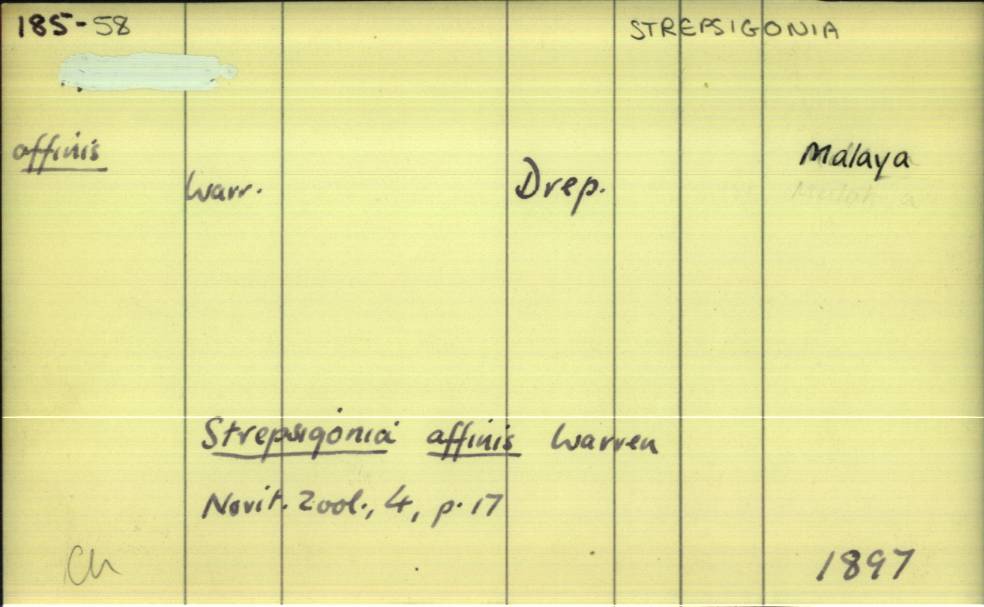 185-58 STREPSIGONIA
affinis Malaya
Warr. Drep.
Strepsigonia affinis Warren
Novit. Zool., 4, p. 17
Ch 1897